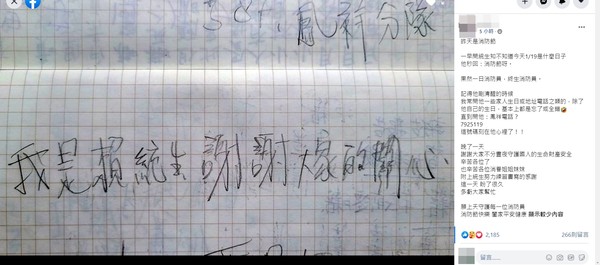 鳳祥分隊
我是賴統生謝謝大家的關心
5 小時
昨天是消防節
一早問統生知不知道今天1/19是什麼日子
他秒回：消防節呀。
果然一日消防員，終生消防員。
記得他剛清醒的時候
我常問他一些家人生日或地址電話之類的，除了
他自己的生日，基本上都是忘了或全錯🤣
直到問他：鳳祥電話？
7925119
這號碼刻在他心裡了！！
晚了一天
謝謝大家不分晝夜守護國人的生命財產安全
辛苦各位了
也辛苦各位消眷姐姐妹妹
附上統生努力練習書寫的感謝
這一天 盼了很久
多虧大家幫忙
願上天守護每一位消防員
消防節快樂 闔家平安健康 顯示較少內容
2,185
266則留言
留言……